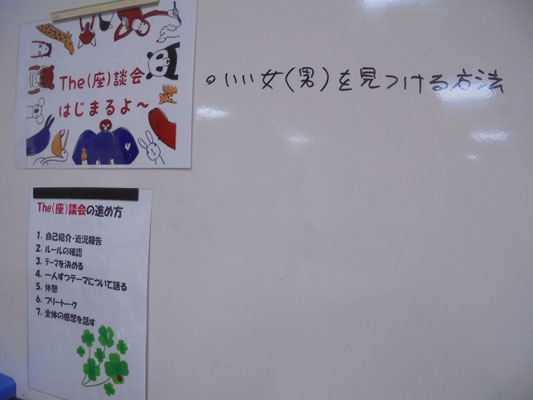 The(座)談会
はじまるよ～
。いい女(男)を見つける方法
The(座)談会の進め方
1. 自己紹介・近況報告
2. ルールの確認
3. テーマを決める
4. 一人ずつテーマについて語る
5. 休憩
6. フリートーク
7. 全体の感想を話す